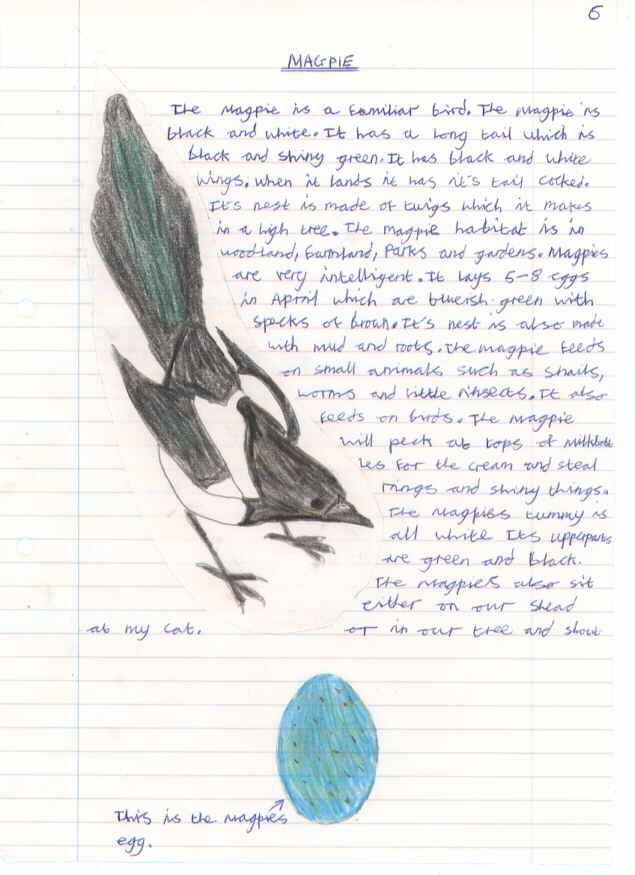 6
MAGPIE
The Magpie is a familiar bird. The magpie is
black and white. It has a long tail which is
black and shiny green. It has black and white
wings. When it lands it has it's tail cocked.
It's nest is made of twigs which it makes
in a high tree. The magpie habitat is in
woodland, farmland, Parks and gardens. Magpies
are very intelligent. It lays 5-8 eggs
in April which are blueish-green with
specks of brown. It's nest is also made
with mud and roots. The magpie feeds
on small animals such as snails,
worms and little insects. It also
feeds on birds. The magpie
will peck at tops of milkbott
les for the cream and steal
rings and shiny things.
The magpies tummy is
all white Its upperparts
are green and black.
The magpies also sit
either on our shead
or in our tree and shout
at my cat.
This is the magpies
egg.